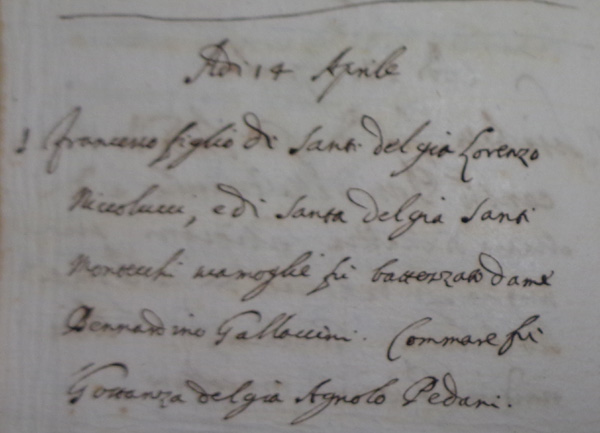 Adi 14 Aprile
1 Francesco figlio di Santi del già Lorenzo
Niccolucci, e di Santa del già Santi
Montechi sua moglie fù battezzato da me
Bernardino Gallaccini. Commare fù
Gostanza del già Agnolo Pedani.